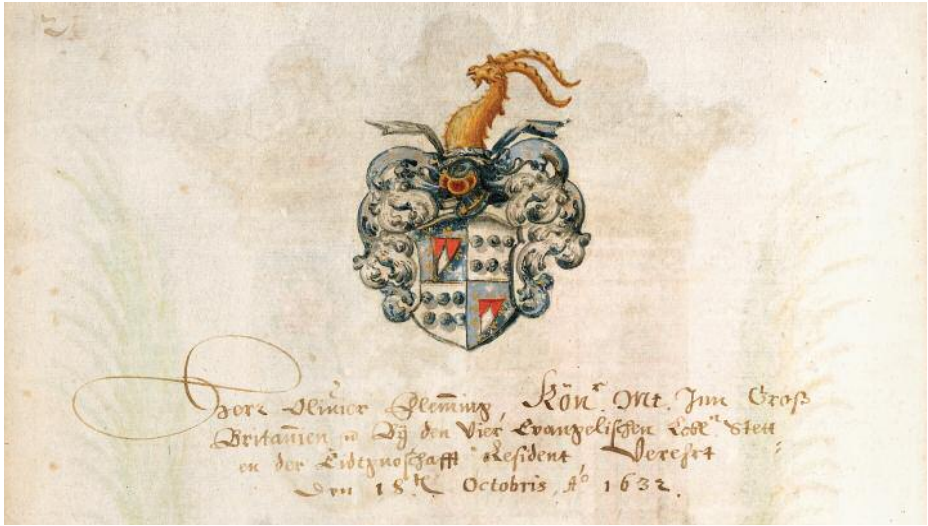 2
Herr Olivier Fleming, Königr. Mt. Jnn Groß
Britanien ꝛc Bÿ den Vier Evangelischen Lobl. Stett
en der Eidtgnoschafft Resident, Verehrt
Den 18.th Octobris, Ao 1632.